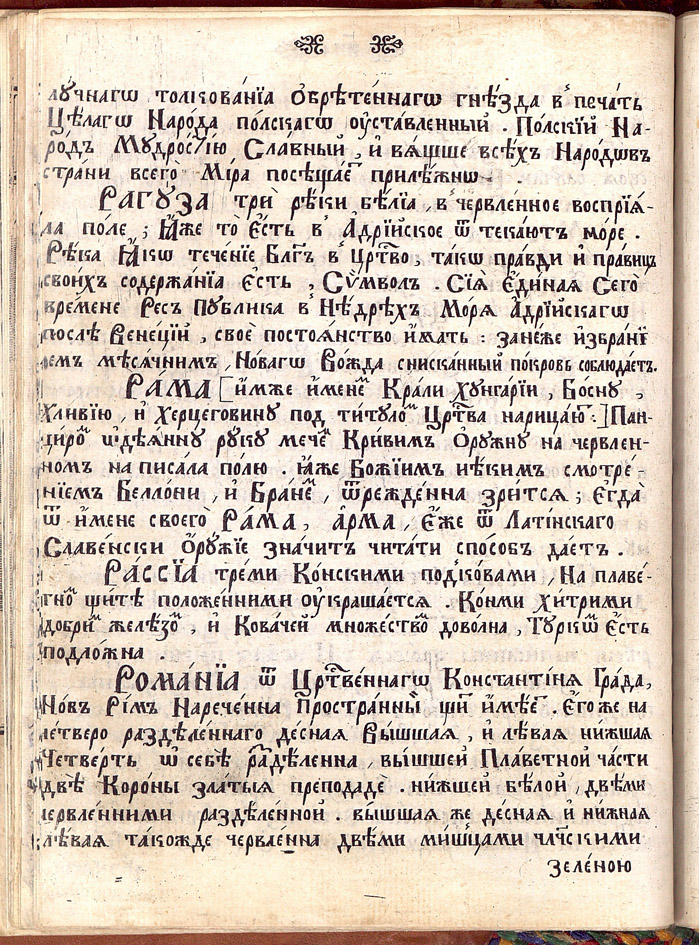 лꙋ́чнагѡ толкова́нїа ѻ҆брѣ́теннагѡ гнѣ́зда в̾ печа́ть
Цѣ́лагѡ Наро́да по́лскагѡ оу҆ста́вленный . По́лскїй На-
ро́дъ Мꙋ́дростїю Сла́вный , и҆ вѧ́щше всѣ́хъ Наро́дѡвъ
стра́ни всегѡ̀ Мі́ра посѣща́етъ прилѣ́жнѡ .
РАГꙊ́ЗА трѝ рѣ́ки бѣ́лїа , в̾ червле́нное воспрїѧ̀-
ла по́ле ; Ꙗ҆́же то̀ є҆́сть в̾ А҆дрі́йское ѿтека́ютъ мо́ре .
Рѣка̀ Ꙗ҆́кѡ тече́нїе Бл҃гъ в̾ Црⷭ҇тво , та́кѡ пра́вди и҆ пра́вицъ
свои́хъ содержа́нїа є҆́сть , Сѷ́мволъ . Сїѧ̀ є҆ди́наѧ Сегѡ̀
вре́мене Рес Пꙋ́блика в̾ Нѣ́дрехъ Мо́рѧ А҆дрі́йскагѡ
после́ Вене́цїй , своѐ постоѧ́нство и҆́мать : зане́же и҆збра́нї
емъ мѣ́сѧчнимъ , Но́вагѡ Во́жда сниска́нный по́кровъ соблюда́етъ.
РА́МА [и҆́мже и҆́менемъ Кра́ли Хꙋнга́рїи , Бо́снꙋ ,
Хли́вїю , и҆ Херцегови́нꙋ под ти́тꙋломъ Црⷭ҇тва нарица́ютъ :] Пан-
ци́ромъ ѡ҆дѣ́ѧннꙋ рꙋ́кꙋ мече́мъ Криви́мъ Ѻ҆рꙋ́жнꙋ на червле́н-
номъ написа́ла по́лю . Ꙗ҆́же Бо́жїимъ нѣ́кимъ смотре́-
нїемъ Белло́ни , и҆ Бра́немъ , ѿрежде́нна зри́тсѧ ; є҆гда̀
ѿ и҆́мене своегѡ̀ РА́МА , А҆́РМА , є҆́же ѿ Лати́нскаго
Славе́нски Ѻ҆рꙋ́жїе зна́читъ чита́ти спо́собъ дае́тъ .
РА́ССЇА тремѝ Ко́нскими подко́вами , На плаве́-
тномъ щи́тѣ положе́нними оу҆краша́етсѧ . Ко́нми Хи́трими
добри́мъ желѣ́зомъ , и҆ Кова́чей мно́жествомъ дово́лна , Тꙋ́ркѡмъ є҆́сть
подло́жна .
РОМА́НЇА ѿ Црⷭ҇тве́ннагѡ Константі́нѧ Гра́да,
Но́въ Ри́мъ Нарече́нна Простра́нный щи́тъ и҆мѣ́етъ . є҆го́же на
че́тверо раздѣле́ннаго де́снаѧ Вы́шшаѧ , и҆ лѣ́ваѧ ни́жшаѧ
Че́тверть ѡ҆ себѣ̀ раздѣле́нна , вы́шшей Пла́ветной ча́сти
двѣ̀ Коро́ны злати́ѧ преподадѐ . ни́жшей бѣ́лой , двѣ́ми
червле́нними раздѣле́нной . вы́шшаѧ же де́снаѧ и҆ ни́жнаѧ
лѣ́ваѧ та́кожде червле́нна двѣ́ми ми́шцами чл҃ческими
зеле́ною